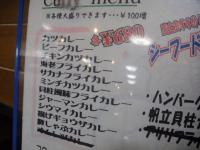 Curry menu
※各種大盛りできます・・・￥100増
￥680
カツカレー
ビーフカレー
チキンカツカレー
海老フライカレー
サカナフライカレー
ミンチカツカレー
貝柱風味フライカレー
ジャーマンカレー
シウマイカレー
揚げギョウザカレー
豚しゃぶカレー
シーフード
・ハンバーグ
・帆立貝柱